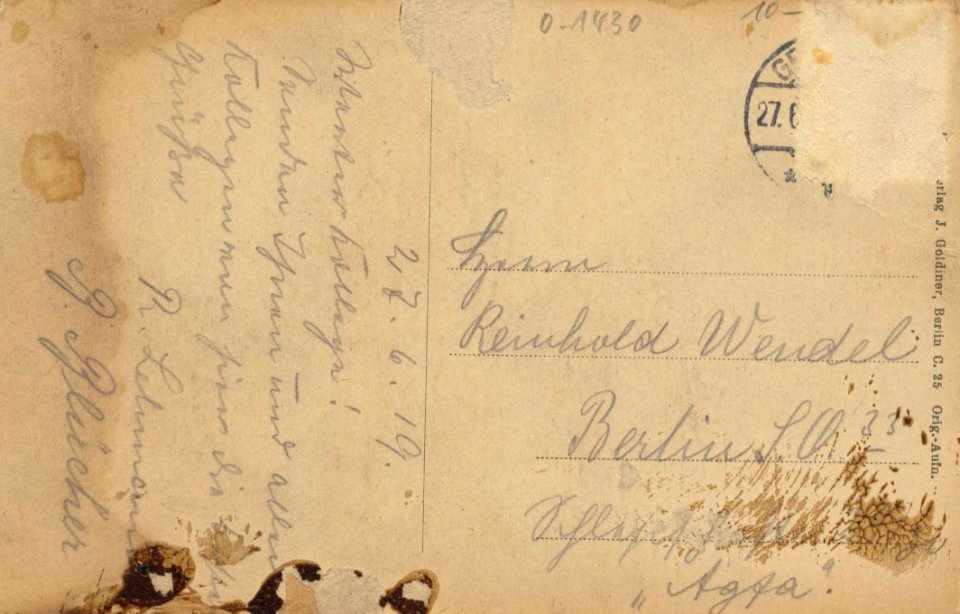 0-1430
10-
27.6
27.6.19.
Werter Kollege!
Senden Ihnen und allen
Kollegen von hier die
Grüße
R. Lehmann
P. Blücher
Herrn
Reinhold Wendel
Berlin S.O. 33
"Agfa".
erlag J. Goldiner, Berlin C. 25 Orig.-Aufn.